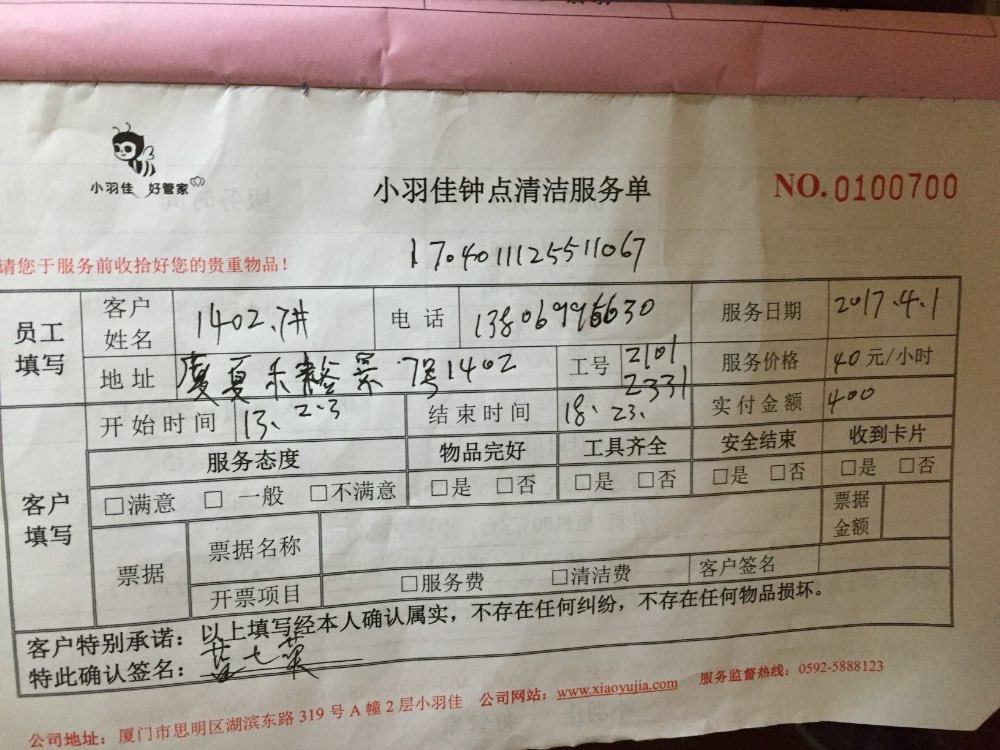 小羽佳 好管家
小羽佳钟点清洁服务单
NO.0100700
170401112551067
请您于服务前收拾好您的贵重物品！
员工填写 客户姓名 1402 电话 13806996630 服务日期 2017.4.1
地址 7号1402 工号 2101 2331 服务价格 40元/小时
客户填写 开始时间 13. 结束时间 18.23. 实付金额 400
服务态度 物品完好 工具齐全 安全结束 收到卡片
□满意 □一般 □不满意 □是 □否 □是 □否 □是 □否 □是 □否
票据 票据名称 票据金额
开票项目 □服务费 □清洁费 客户签名
客户特别承诺：以上填写经本人确认属实，不存在任何纠纷，不存在任何物品损坏。
特此确认签名：
公司地址：厦门市思明区湖滨东路319号A幢2层小羽佳 公司网站：www.xiaoyujia.com 服务监督热线：0592-5888123